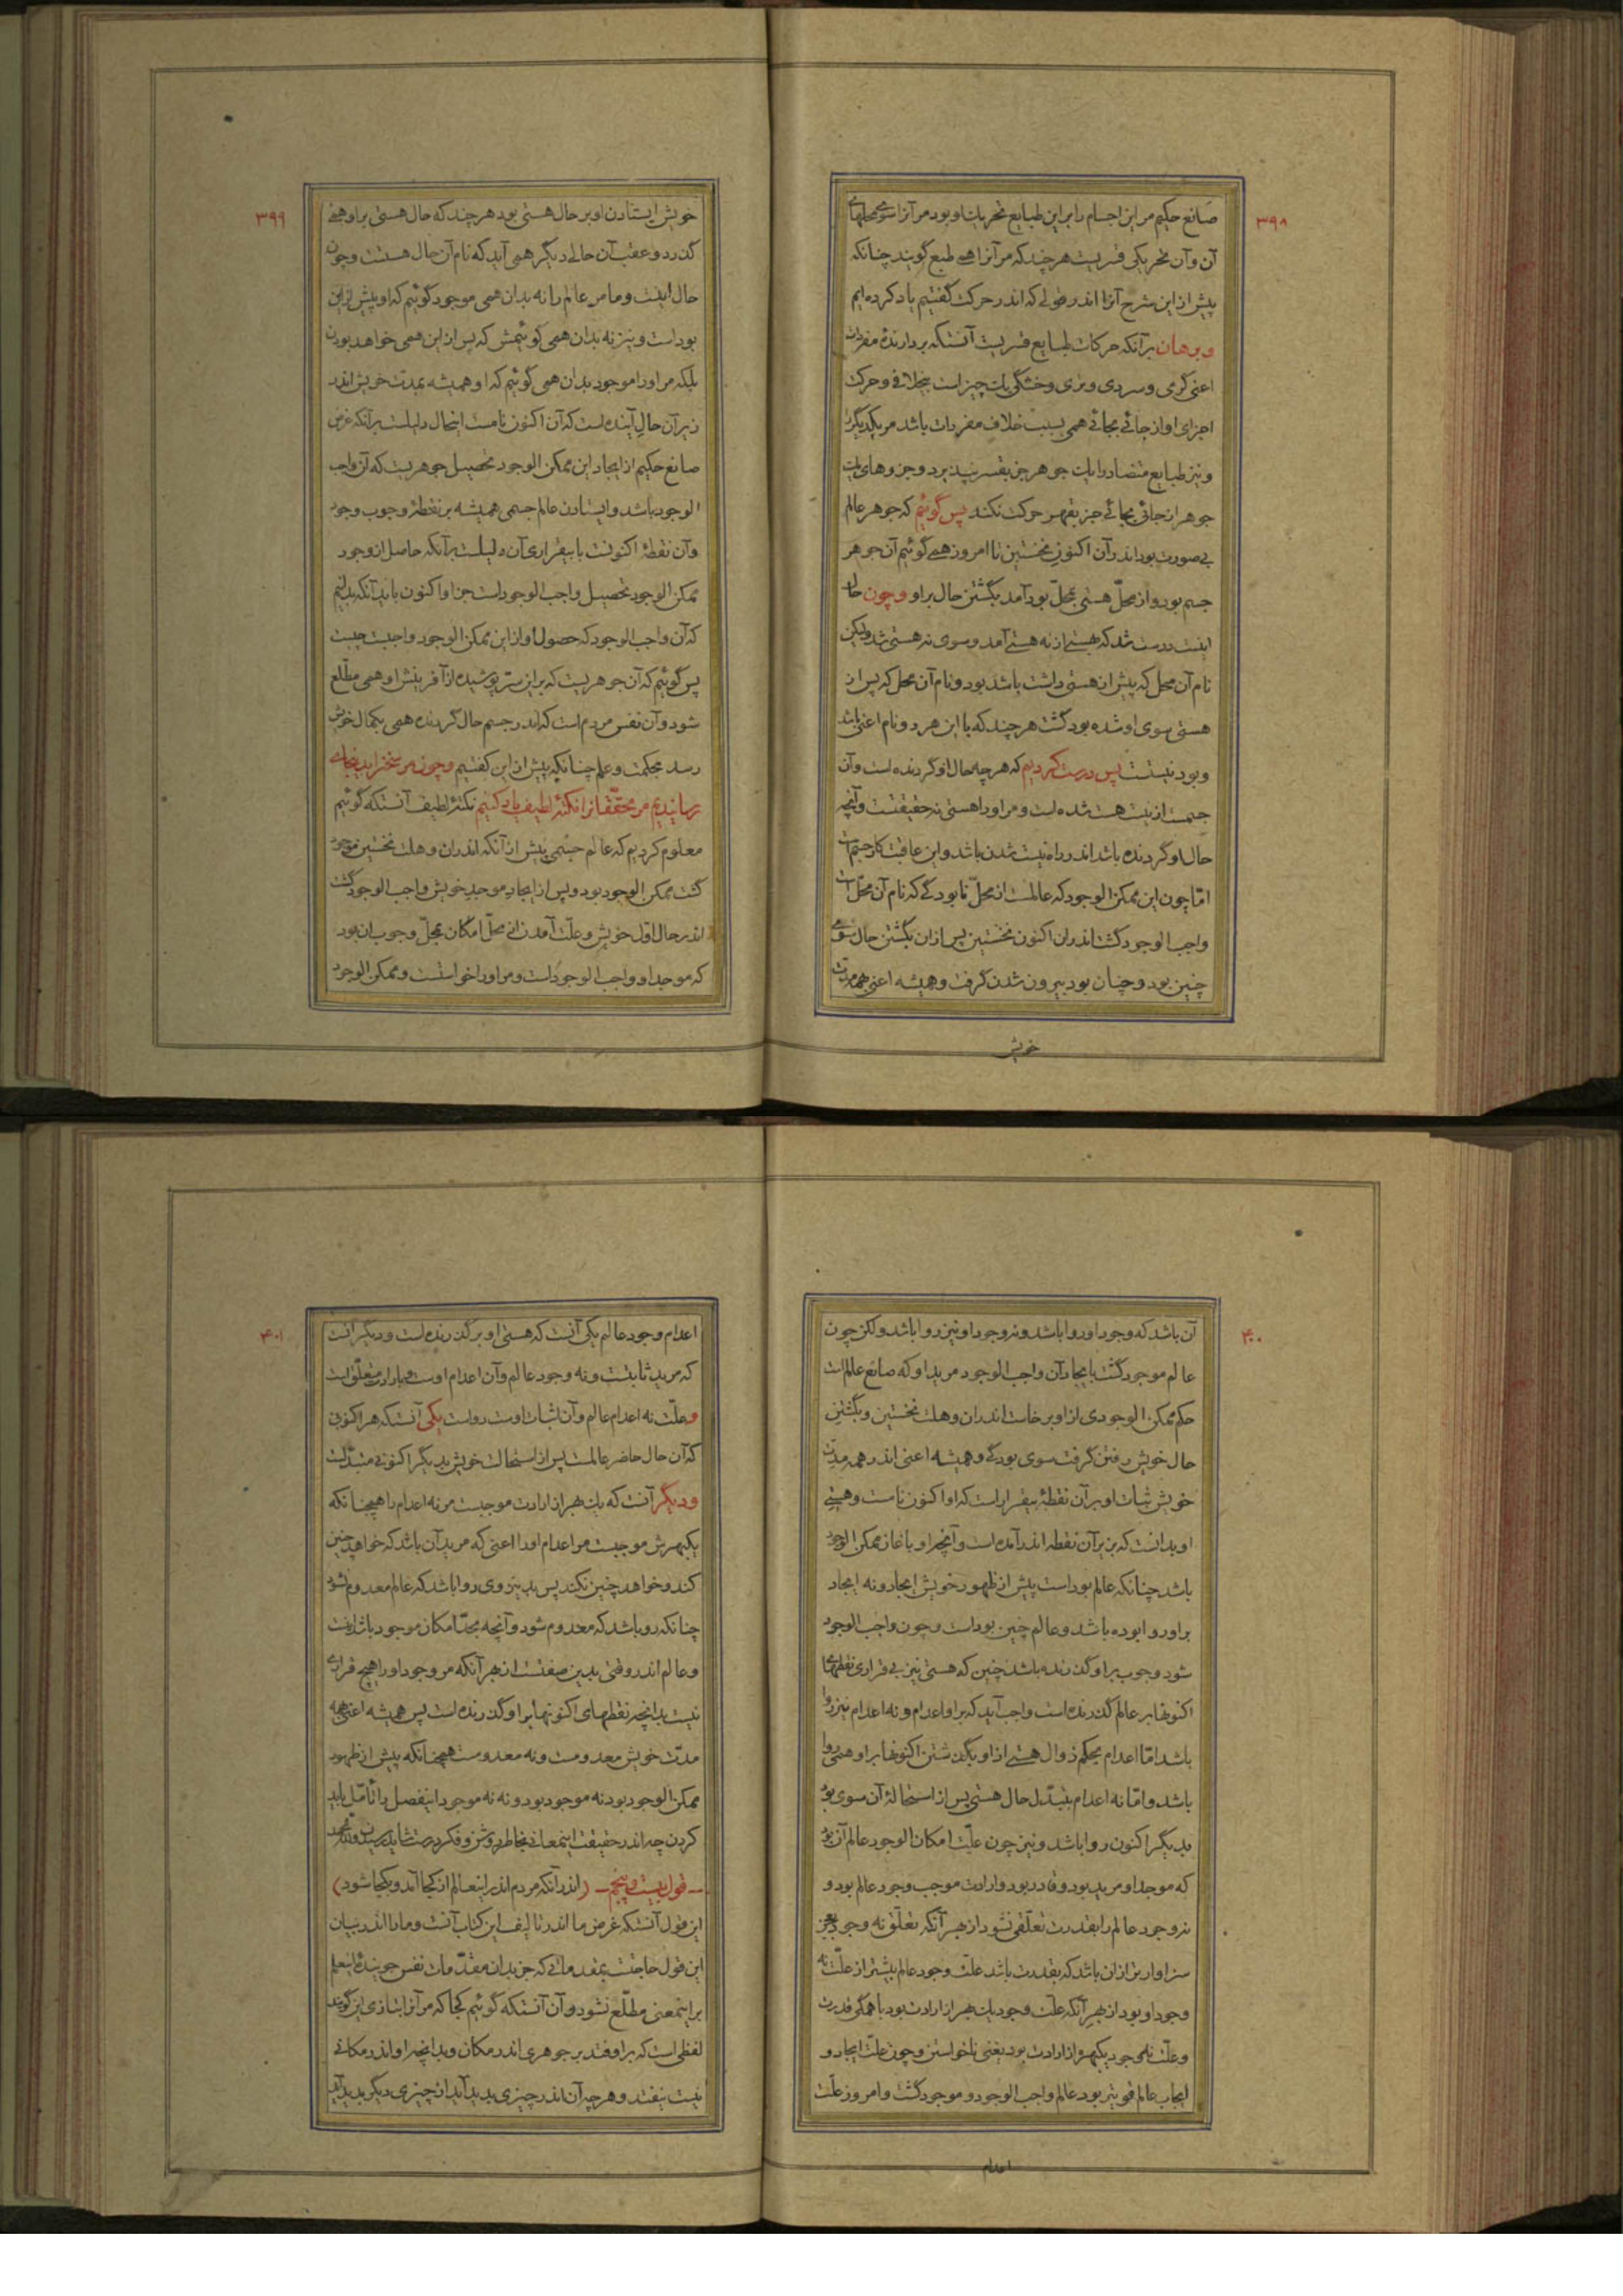 ۳۹۸
صانع حکیم مر این اجسام را بر این طبایع تحریک او بود مر آنرا سوی محلهای
آن و آن تحریکی قسریست هر چند که مر آنرا همی طبع گویند چنانکه
پیش از این شرح آنرا اندر قولی که اندر حرکت گفتیم یاد کرده‌ایم
و برهان بر آنکه حرکات طبایع قسریست آنستکه بردارندهٔ مفردات
اعنی گرمی و سردی و تری و خشکی یک چیز است بیخلافی و حرکت
اجزای او از جائی بجائی همی بسبب خلاف مفردات باشد مر یکدیگر را
و نیز طبایع متضاد را یک جوهر جز بقسر نپذیرد و جزوهای یک
جوهر از جائی بجائی جز بقهر حرکت نکند پس گوئیم که جوهر عالم
بی‌صورت بود اندر آن اکنون نخستین تا امروز همی گوئیم آن جوهر
جسم بود و از محلّ هستی بمحلّ بود آمد بگشتن حال بر او و چون حال
اینست درست شد که هستی از نه هستی آمد و سوی نه هستی شد ولیکن
نام آن محل که پیش از هستی داشت باشد بود و نام آن محل که پس از
هستی سوی او شده بود گشت هر چند که با این هر دو نام اعنی باشد
و بود نیست پس درست کردیم که هر چه حال او گردنده است و آن
جسمست از نیست هست شده است و مر او را هستی نه حقیقتست و آنچه
حال او گردنده باشد اندر راه نیست شدن باشد و این عاقبت کار جسم است
امّا چون این ممکن الوجود که عالمست از محلّ نابودگی که نام آن محلّ است
واجب الوجود گشت اندر ان اکنون نخستین پس از ان بگشتن حال سوی
چنین بود و چنان بود بیرون شدن گرفت و همیشه اعنی همه مدّت
خویش
۳۹۹
خویش ایستادن او بر حال هستی بود هر چند که حال هستی بر او همی
گذرد و عقب آن حالی دیگر همی آید که نام آن حال هست و چون
حال اینست و ما مر عالم را نه بدان همی موجود گوئیم که او پیش از این
بود است و نیز نه بدان همی گوئیمش که پس از این همی خواهد بودن
بلکه مر او را موجود بدان همی گوئیم که او همیشه بمدّت خویش اندر
زیر آن حال آینده است که آن اکنون نامست اینحال دلیلست بر آنکه غرض
صانع حکیم از ایجاد این ممکن الوجود تحصیل جوهریست که آن واجب
الوجود باشد و ایستادن عالم جسمی همیشه بر نقطهٔ وجوب وجود
و آن نقطهٔ اکنونست با بیقراری آن دلیلست بر آنکه حاصل از وجود
ممکن الوجود تحصیل واجب الوجود است جز او اکنون باید آنکه بدانیم
که آن واجب الوجود که حصول او از این ممکن الوجود واجبست چیست
پس گوئیم که آن جوهریست که بر این سرّ پوشیده از آفرینش او همی مطّلع
شود و آن نفس مردم است که اندر جسم حال گردنده همی بکمال خویش
رسد بحکمت و علم چنانکه پیش از این گفتیم و چون مر سخنرا بدینجایگاه
رسانیدیم مر محقّقانرا نکتهٔ لطیف یاد کنیم نکتهٔ لطیف آنستکه گوئیم
معلوم کردیم که عالم جسمی پیش از آنکه اندر ان وهلت نخستین موجود
گشت ممکن الوجود بود و پس از ایجاد موجد خویش واجب الوجود گشت
اندر حال اوّل خویش و علّت آمدن از محلّ امکان بمحلّ وجوب ان بود
که موجد او واجب الوجود است و مر او را خواست و ممکن الوجود
۴۰۰
آن باشد که وجود او روا باشد و نه وجود او نیز روا باشد ولکن چون
عالم موجود گشت بایجاد آن واجب الوجود مرید او که صانع عالم است
حکم ممکن الوجودی از او برخاست اندر ان وهلت نخستین و بگشتن
حال خویش رفتن گرفت سوی بودگی و همیشه اعنی اندر همه مدّت
خویش ثبات او بر آن نقطهٔ بیقرار است که او اکنون نامست و هستی
او بدانست که بزیر آن نقطه اندر آمده است و آنچه او باغاز ممکن الوجود
باشد چنانکه عالم بود است پیش از ظهور خویش ایجاد و نه ایجاد
بر او روا بوده باشد و عالم چنین بود است و چون واجب الوجود
شود وجوب بر او گذرنده باشد چنین که هستی نیز بی قراری نقطهای
اکنونها بر عالم گذرنده است واجب آید که بر او اعدام و نه اعدام نیز روا
باشد امّا اعدام بحکم زوال هستی از او بگذشتن اکنونها بر او همی روا
باشد و امّا نه اعدام بتبدّل حال هستی پس از استحالهٔ آن سوی بود
بدیگر اکنون روا باشد و نیز چون علّت امکان الوجود عالم آن بود
که موجد او مرید بود و قادر بود و ارادت موجب وجود عالم بود و
نه وجود عالم را بقدرت تعلّقی نشود از بهر آنکه تعلّق نه وجود بعجز
سزاوارتر از ان باشد که بقدرت باشد علّت وجود عالم بیشتر از علّت نه
وجود او بود از بهر آنکه علّت وجود یک بهر از ارادت بود با همگی قدرت
و علّت نه وجود یکبهر از ارادت بود یعنی ناخواستن و چون علّت ایجاد و
ایجاب عالم قویتر بود عالم واجب الوجود و موجود گشت و امروز علّت
اعدام
۴۰۱
اعدام وجود عالم یکی آنست که هستی او بر گذرنده است و دیگر آنست
که مرید ثابتست و نه وجود عالم و آن اعدام اوست و بارادت متعلّق است
و علّت نه اعدام عالم و آن اثبات اوست دو است یکی آنستکه هر اکنونی
که آن حال حاضر عالمست پس از استحالت خویش بدیگر اکنونی متبدّلست
و دیگر آنست که یک بهر از ارادت موجبست مر نه اعدام را همچنانکه
یکبهرش موجبست مر اعدام او را اعنی که مرید آن باشد که خواهد چنین
کند و خواهد چنین نکند پس بدین روی روا باشد که عالم معدوم شود
چنانکه روا باشد که معدوم شود و آنچه بحدّ امکان موجود باشد اینست
و عالم اندر وقتی بدین صفتست از بهر آنکه مر وجود او را هیچ قراری
نیست بدانچه نقطهای اکنونها بر او گذرنده است پس همیشه اعنی همه
مدّت خویش معدومست و نه معدومست همچنانکه پیش از ظهور
ممکن الوجود بود نه موجود بود و نه نه موجود اینفصل را تأمّل باید
کردن چه اندر حقیقت اینمعانی بخاطر روشن و فکر درست شاید رسیدن و للّه الحمد
ــ قول بیست و پنجم ــ (اندر آنکه مردم اندر اینعالم از کجا آمد و بکجا شود)
این قول آنستکه غرض ما اندر تألیف این کتاب آنست و ما را اندر بیان
این قول حاجتست بمقدماتی که جز بدان مقدّمات نفس جویندهٔ اینعلم
بر اینمعنی مطّلع نشود و آن آنستکه گوئیم کجا که مر آنرا بتازی این گویند
لفظی است که بر اوفتد بر جوهری اندر مکان و بدانچه او اندر مکانی
نیست نیفتد و هر چه آن اندر چیزی پدید آید از چیزی دیگر پدید آید